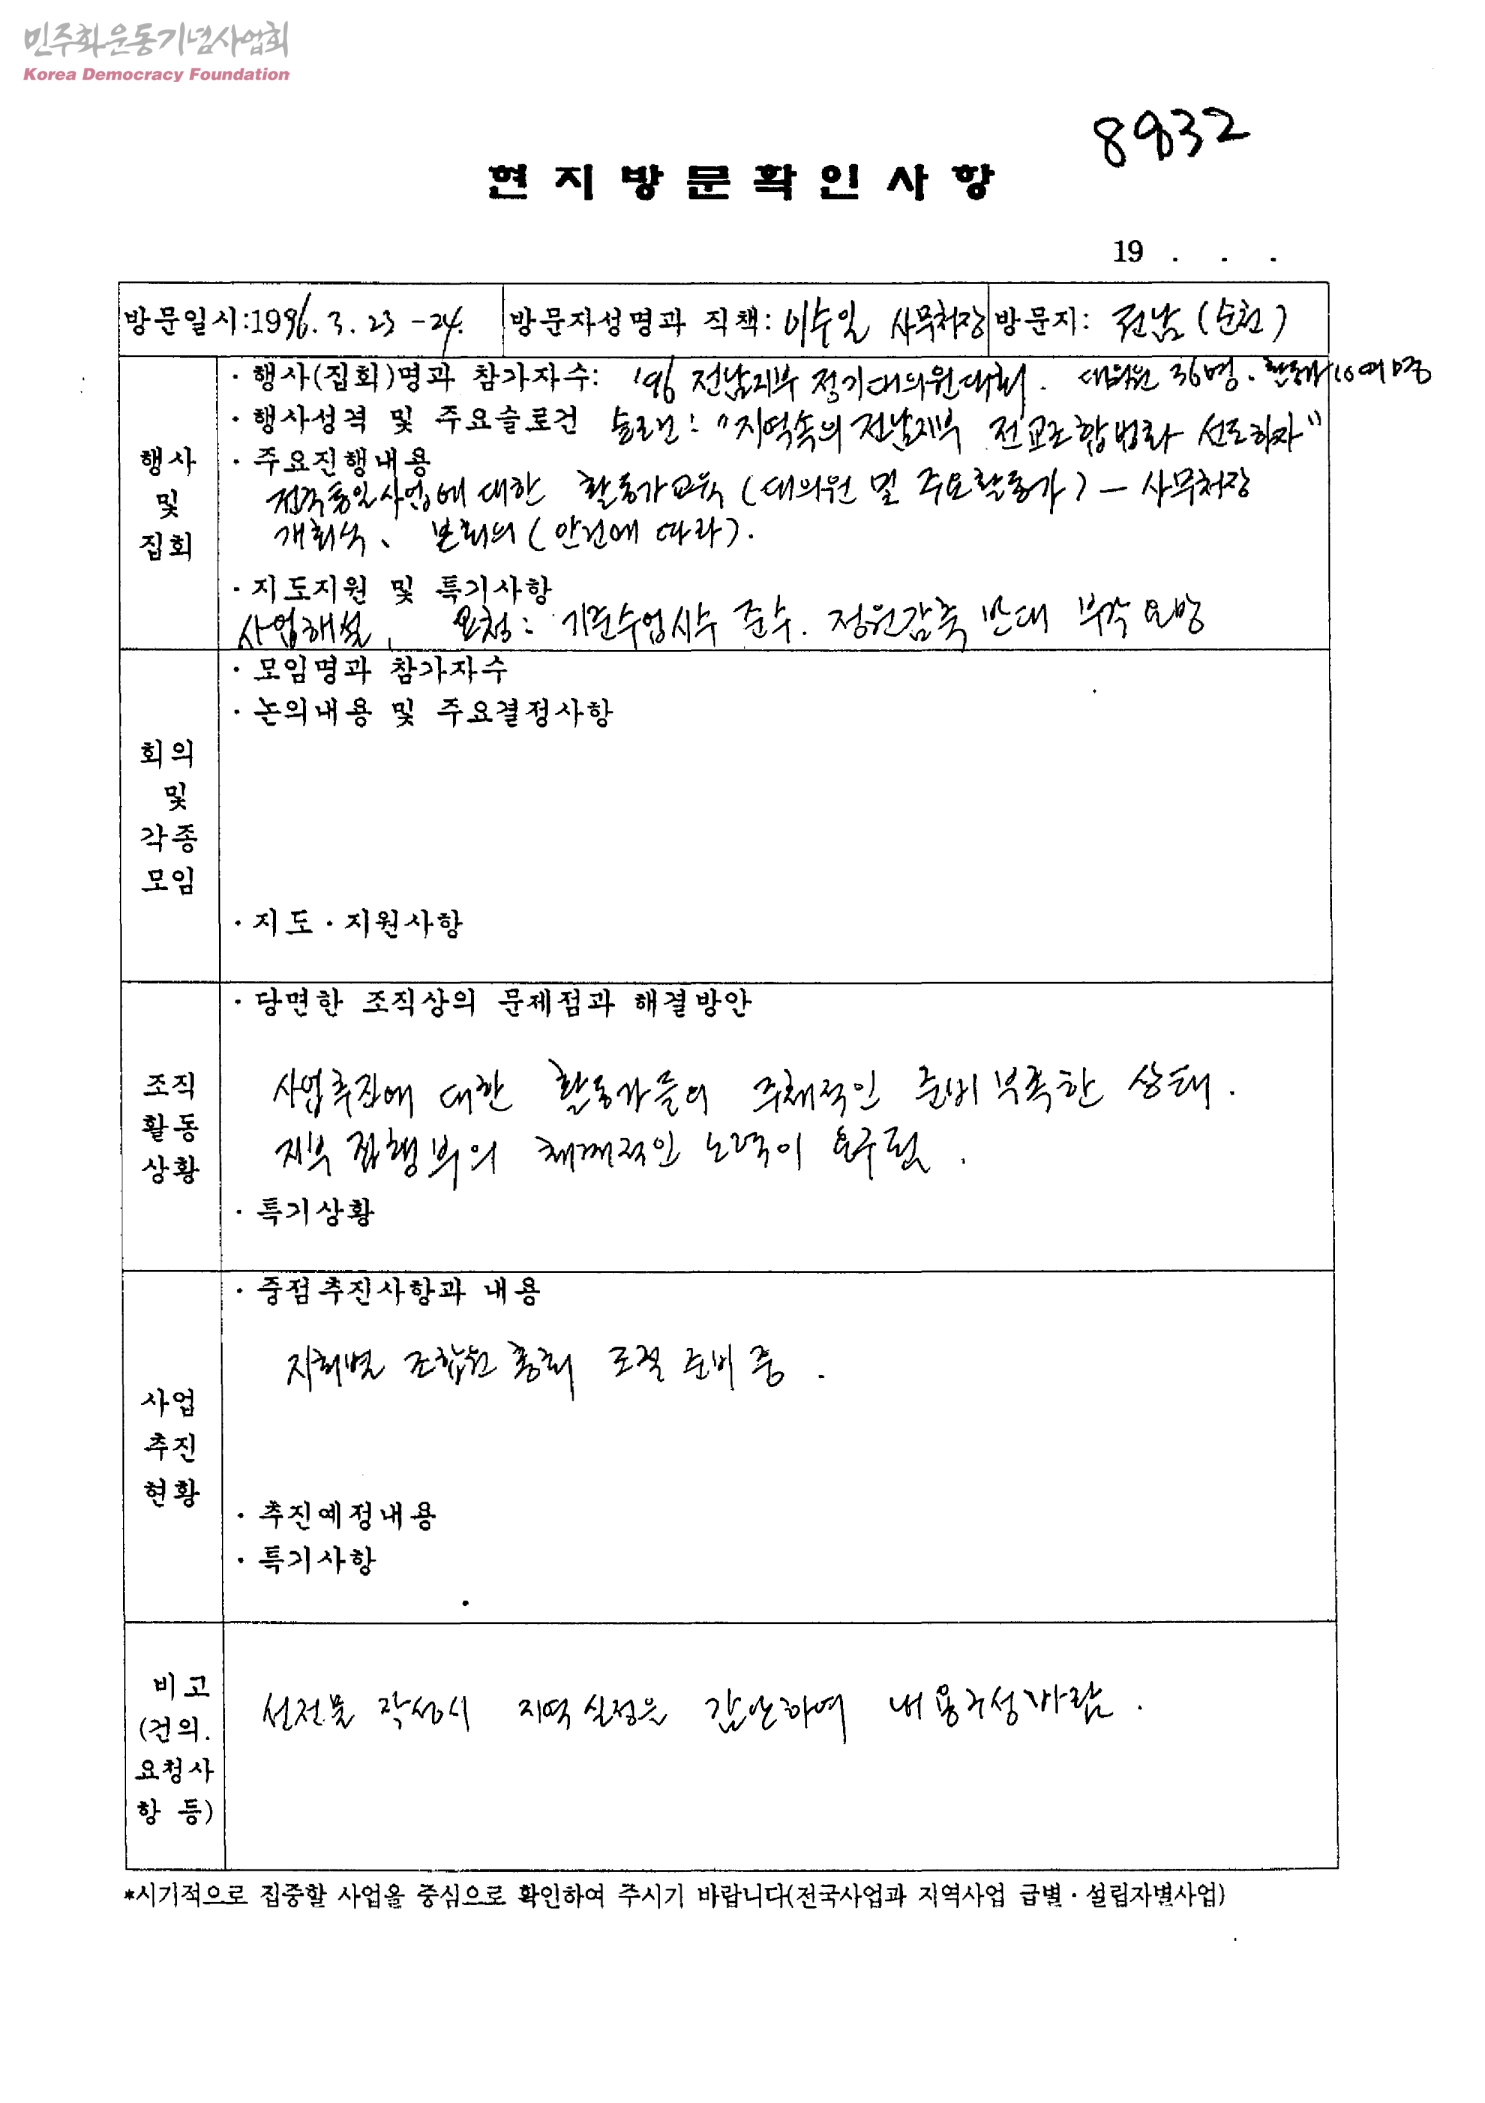 민주화운동기념사업회
Korea Democracy Foundation
8932
현지방문확인사항
19 . . .
방문일시:1996. 3. 23 -24. 방문자성명과 직책: 이수일 사무처장 방문지: 전남 (순천)
행사 및 집회
· 행사(집회)명과 참가자수: '96 전남지부 정기대의원대회. 대의원 36명. 활동가 10여명
· 행사성격 및 주요슬로건 슬로건: "지역속의 전남지부 전교조 합법화 선도하자"
· 주요진행내용
전국통일사업에 대한 활동가교육 (대의원 및 주요활동가) - 사무처장
개회식、 본회의 (안건에 따라).
· 지도지원 및 특기사항
사업해설, 요청: 기준수업시수 준수. 정원감축 반대 부각 요망
회의 및 각종 모임
· 모임명과 참가자수
· 논의내용 및 주요결정사항
· 지도 · 지원사항
조직 활동 상황
· 당면한 조직상의 문제점과 해결방안
사업추진에 대한 활동가들의 주체적인 준비 부족한 상태.
지부 집행부의 체계적인 노력이 요구됨.
· 특기상황
사업 추진 현황
· 중점추진사항과 내용
지회별 조합원 총회 조직 준비 중.
· 추진예정내용
· 특기사항
비고 (건의. 요청사항 등)
선전물 작성시 지역 실정을 감안하여 내용구성 바람.
*시기적으로 집중할 사업을 중심으로 확인하여 주시기 바랍니다(전국사업과 지역사업 급별 · 설립자별사업)